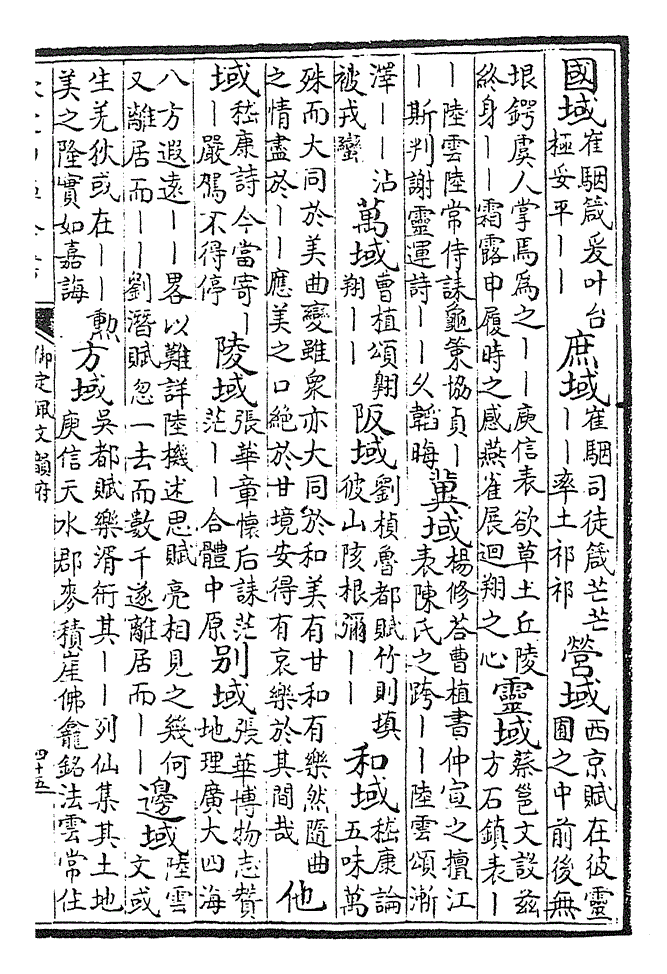 國域崔駰箴爰叶台極妥平——庶域崔駰司徒箴芒芒——率土祁祁營域西京賦在彼靈囿之中前後無
垠鍔虞人掌焉為之——庾信表欲草土丘陵終身——霜露申履時之感燕雀展迴翔之心靈域蔡邕文設兹方石鎮表—
—陸雲陸常侍誄龜筴協貞——斯判謝靈運詩——久韜晦冀域楊修荅曹植書仲宣之擅江表陳氏之跨——陸雲頌漸
澤——沾被戎蠻萬域曹植頌翱翔——阪域劉楨魯都賦竹則填彼山陔根彌——和域嵇康論五味萬
殊而大同於美曲變雖衆亦大同於和美有甘和有樂然隨曲之情盡於——應美之口絶於甘境安得有哀樂於其間哉他
域嵇康詩今當寄——嚴駕不得停陵域張華章懷后誄茫茫——合體中原别域張華博物志贊地理廣大四海
八方遐遠——畧以難詳陸機述思賦亮相見之幾何又離居而——劉潛賦忽一去而數千遂離居而——邊域陸雲文或
生羌狄或在——勲美之隆實如嘉誨方域吳都賦樂湑衎其——列仙集其土地庾信天水郡麥積崖佛龕銘法雲常住
御定佩文韻府
四十五